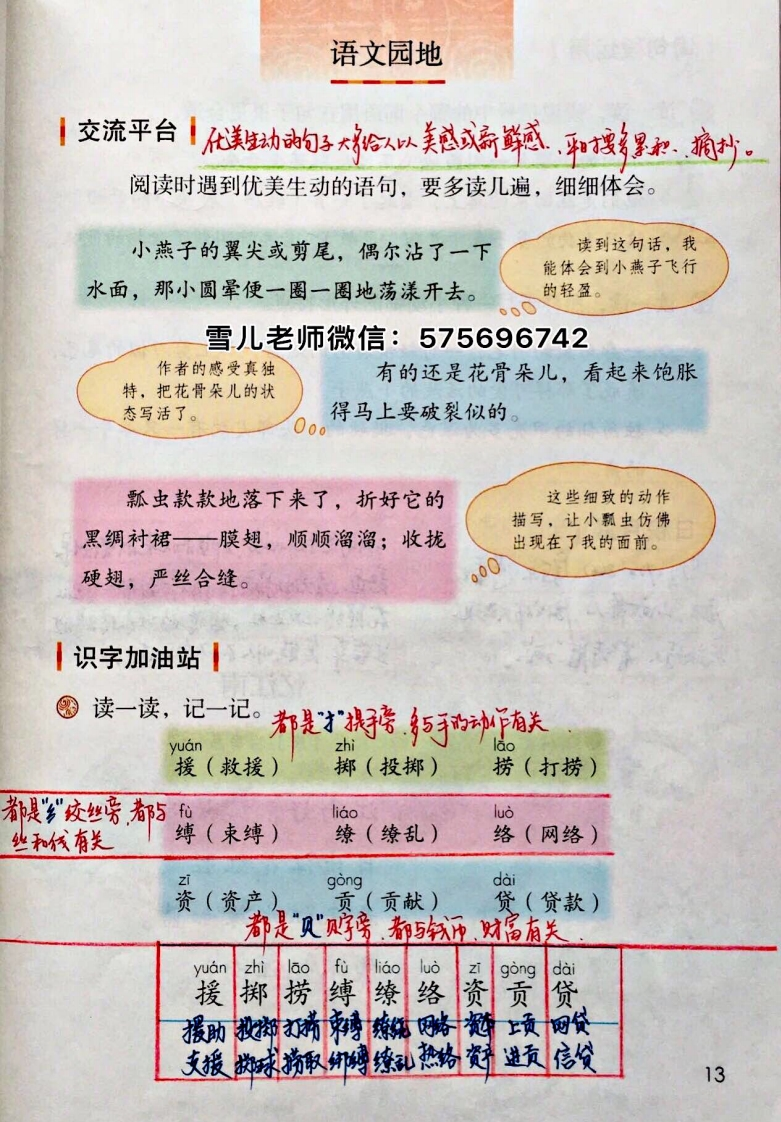 语文园地
交流平台
优美生动的句子大多给人以美感或新鲜感、平时要多累积、摘抄。
阅读时遇到优美生动的语句，要多读几遍，细细体会。
小燕子的翼尖或剪尾，偶尔沾了一下
水面，那小圆晕便一圈一圈地荡漾开去。
读到这句话，我
能体会到小燕子飞行
的轻盈。
雪儿老师微信：575696742
作者的感受真独
特，把花骨朵儿的状
态写活了。
有的还是花骨朵儿，看起来饱胀
得马上要破裂似的。
瓢虫款款地落下来了，折好它的
黑绸衬裙——膜翅，顺顺溜溜；收拢
硬翅，严丝合缝。
这些细致的动作
描写，让小瓢虫仿佛
出现在了我的面前。
识字加油站
读一读，记一记。
都是"扌"提手旁、多与手的动作有关
yuán zhì lāo
援（救援） 掷（投掷） 捞（打捞）
都是"纟"绞丝旁、都与
丝和线有关
fù liáo luò
缚（束缚） 缭（缭乱） 络（网络）
zī gòng dài
资（资产） 贡（贡献） 贷（贷款）
都是"贝"贝字旁、都与钱币、财富有关
yuán zhì lāo fù liáo luò zī gòng dài
援 掷 捞 缚 缭 络 资 贡 贷
援助 投掷 打捞 束缚 缭绕 网络 资本 上贡 网贷
支援 掷球 捞取 绑缚 缭乱 热络 资产 进贡 信贷
13